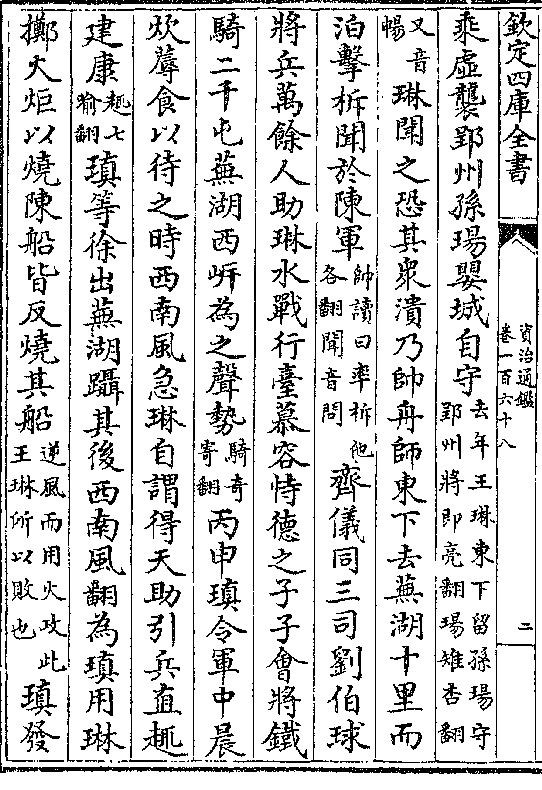 欽定四庫全書
資治通鑑
卷一百六十八
二
乘虛襲郢州孫瑒嬰城自守去年王琳東下留孫瑒守郢州將即亮翻瑒雉杏翻
又音暢琳聞之恐其衆潰乃帥舟師東下去蕪湖十里而
泊擊柝聞於陳軍帥讀曰率柝他各翻聞音問齊儀同三司劉伯球
將兵萬餘人助琳水戰行臺慕容恃德之子子會將鐵
騎二千屯蕪湖西岍為之聲勢騎奇寄翻丙申瑱令軍中晨
炊蓐食以待之時西南風急琳自謂得天助引兵直趣
建康趣七喻翻瑱等徐出蕪湖躡其後西南風翻為瑱用琳
擲火炬以燒陳船皆反燒其船逆風而用火攻此王琳所以敗也瑱發